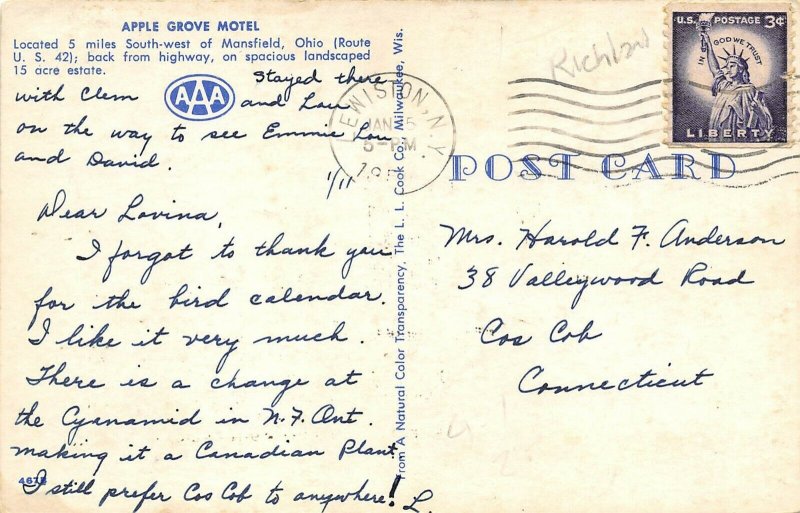 APPLE GROVE MOTEL
Located 5 miles South-west of Mansfield, Ohio (Route
U. S. 42); back from highway, on spacious landscaped
15 acre estate.
AAA
Stayed there
with Clem and Lou
on the way to see Emmie Lou
and David.
1/11
Dear Lovina,
I forgot to thank you
for the bird calendar.
I like it very much.
There is a change at
the Cyanamid in N.F. Ont.
making it a Canadian Plant.
I still prefer Cos Cob to anywhere! L.
From A Natural Color Transparency, The L. L. Cook Co., Milwaukee, Wis.
LEWISTON, N.Y.
JAN 15
5-PM
Richland
U.S. POSTAGE 3¢
IN GOD WE TRUST
LIBERTY
POST CARD
Mrs. Harold F. Anderson
38 Valleywood Road
Cos Cob
Connecticut